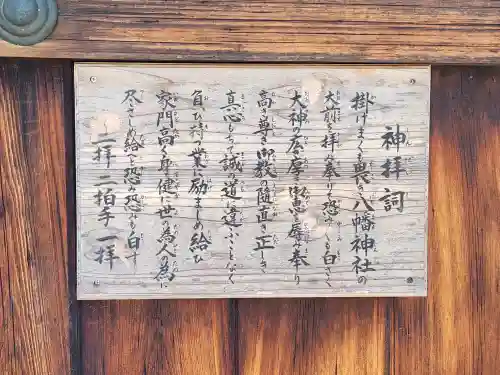 神拝詞
掛けまくも畏き八幡神社の
大前を拝み奉り恐み恐みも白さく
大神の広き厚き御恵を辱み奉り
高き尊き御教の随直き正しき
真心もちて誠の道に違ふことなく
負ひ持つ業に励ましめ給ひ
家門高く身健に世の為人の為に
尽さしめ給へと恐み恐みも白す
二拝二拍手一拝